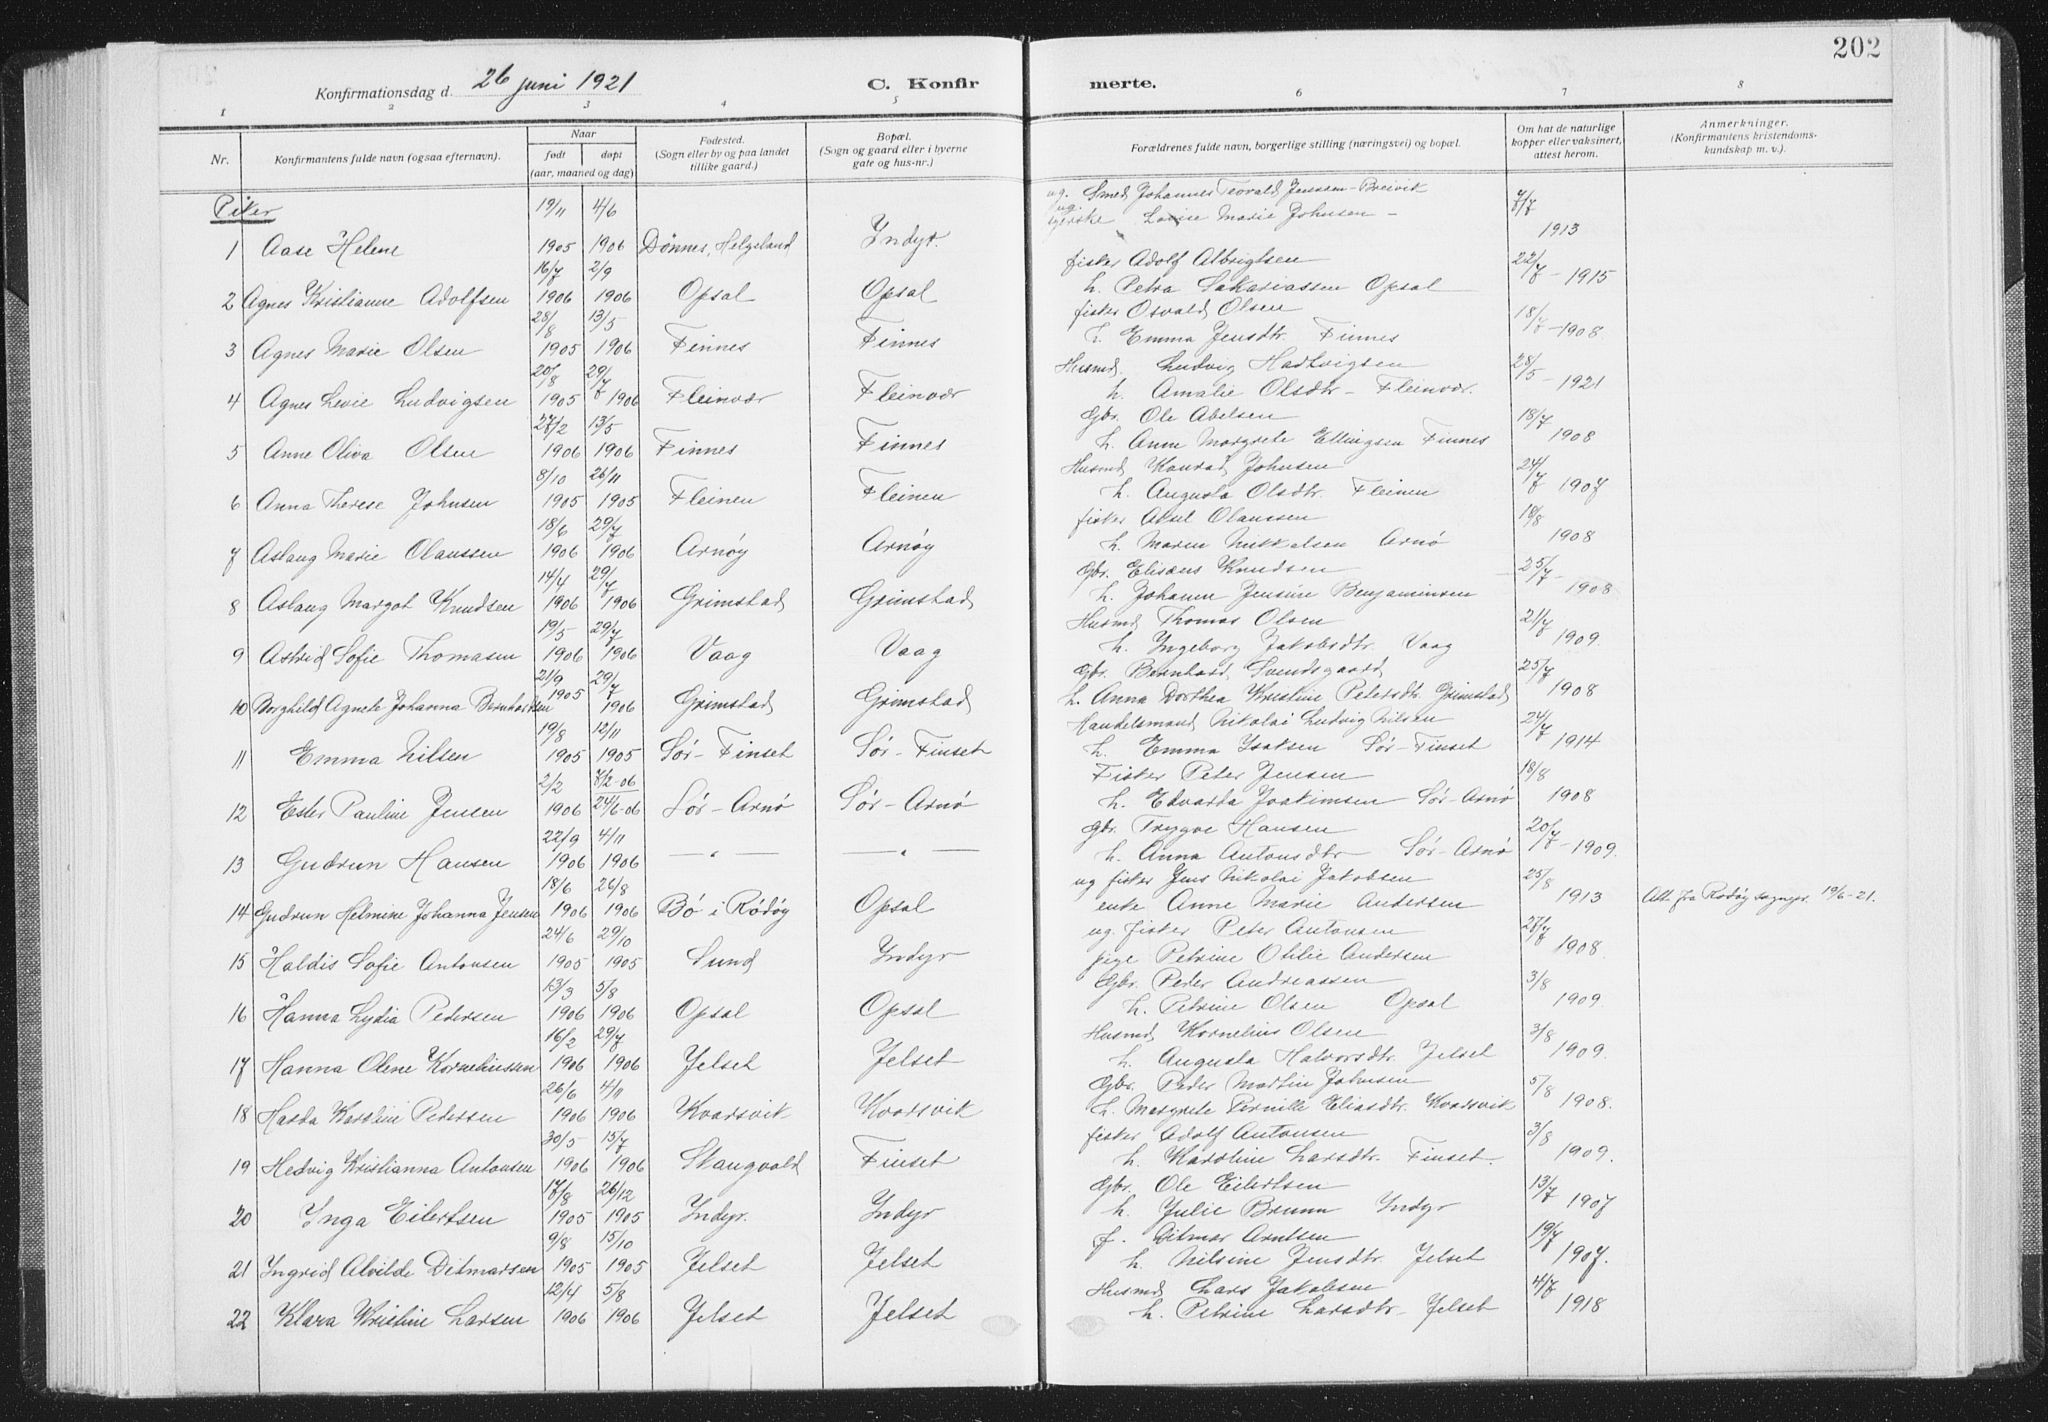 202
Konfirmationsdag d. 26 juni 1921 C. Konfirmerte.
1 2 3 4 5 6 7 8
Nr. Konfirmantens fulde navn (ogsaa efternavn). Naar født døpt (aar, maaned og dag) Fødested. (Sogn eller by og paa landet tillike gaard.) Bopæl. (Sogn og gaard eller i byerne gate og hus-nr.) Forældrenes fulde navn, borgerlige stilling (næringsvei) og bopæl. Om hat de naturlige kopper eller vaksinert, attest herom. Anmerkninger. (Konfirmantens kristendomskundskap m. v.)
Piker 19/11 4/6 ug. Smed Johannes Jenssen-Breivik 7/7
1 Aase Helene 1905 1906 Dønnes, Helgeland Indyr. Marie Johnsen 1913
16/7 2/9 fisker Adolf Albrigtsen 22/7
2 Agnes Kristianne Adolfsen 1906 1906 Opsal Opsal h. Petra Sakariassen Opsal 1915
28/8 13/5 fisker Osvald Olsen 18/7
3 Agnes Marie Olsen 1905 1906 Finnes Finnes h. Emma Jensdtr. Finnes 1908
20/8 29/7 Husmd. Ludvig Hartvigsen 28/5
4 Agnes Levie Ludvigsen 1905 1906 Fleinvær Fleinvær h. Amalie Olsdtr - Fleinvær. 1921
27/2 13/5 Gbr. Ole Abelsen 18/7
5 Anne Oliva Olsen 1906 1906 Finnes Finnes h. Anne Margrete Ellingsen Finnes 1908
8/10 26/11 Husmd Konrad Johnsen 24/7
6 Anna Therese Johnsen 1905 1905 Fleinen Fleinen h. Augusta Olsdtr. Fleinen 1907
18/6 29/7 fisker Aksel Olaussen 18/8
7 Aslaug Marie Olaussen 1906 1906 Arnøy Arnøy h. Maren Nikkelsen Arnø 1908
14/4 29/7 Gbr. Elisæus Knudsen 25/7
8 Aslaug Margot Knudsen 1906 1906 Grimstad Grimstad h. Johanne Jensine Benjaminsen 1908
19/5 29/7 Husmd Thomas Olsen 21/7
9 Astrid Sofie Thomasen 1906 1906 Vaag Vaag h. Ingeborg Jakobsdtr. Vaag 1909.
21/9 29/7 Gbr. Bernhard Svendsgaard 25/7
10 Borghild Agnete Johanna Bernhardsen 1905 1906 Grimstad Grimstad h. Anna Dorthea Kristine Petersdtr. Grimstad 1908
19/8 12/11 Handelsmand Nikolai Ludvig Nilsen 24/7
11 Emma Nilsen 1905 1905 Sør-Finset Sør-Finset h. Emma Isaksen Sør-Finset 1914
2/2 7/2-06 Fisker Peter Jensen 18/8
12 Ester Pauline Jensen 1906 24/6-06 Sør-Arnø Sør-Arnø h. Edvarda Joakimsen Sør-Arnø 1908
22/9 4/11 Gbr. Trygve Hansen 20/7
13 Gudrun Hansen 1906 1906 — " — — " — h. Anna Antonsdtr Sør-Arnø 1909.
18/6 26/8 ug fisker Jens Nikolai Jakobsen 25/8
14 Gudrun Helmine Johanna Jensen 1906 1906 Bø i Rødøy Opsal enke Anne Marie Andersen 1913 Att. fra Rødøy sognepr. 10/6-21.
24/6 29/10 ug. fisker Peter Antonsen 27/7
15 Haldis Sofie Antonsen 1905 1905 Sund Indyr pige Petrine Otilie Andersen 1908
13/3 5/8 Gbr. Peder Andreassen 3/8
16 Hanna Lydia Pedersen 1906 1906 Opsal Opsal h. Petrine Olsen Opsal 1909.
16/2 29/7 Husmd Kornelius Olsen 3/8
17 Hanna Olene Korneliussen 1906 1906 Jelset Jelset h. Augusta Halvorsdtr. Jelset 1909.
26/6 4/11 Gbr. Peder Martin Johnsen 5/8
18 Harda Karoline Pedersen 1906 1906 Kvarsvik Kvarsvik h. Margrete Pernille Eliasdtr. Kvarsvik 1908.
30/5 15/7 fisker Adolf Antonsen 3/8
19 Hedvig Kristianna Antonsen 1906 1906 Skaugvold Finset h. Karoline Larsdtr. Finset. 1909.
17/8 26/12 Gbr. Ole Eilertsen 13/7
20 Inga Eilertsen 1905 1905 Indyr. Indyr h. Julie Brunn Indyr 1907
9/8 15/10 f. Ditmar Arntsen 19/7
21 Ingrid Alvilde Ditmarsen 1905 1905 Jelset Jelset h. Nilsine Jensdtr Jelset 1907.
12/4 5/8 Husmd Lars Jakobsen 4/7
22 Klara Kristine Larsen 1906 1906 Jelset Jelset h. Petrine Larsdtr- Jelset 1918